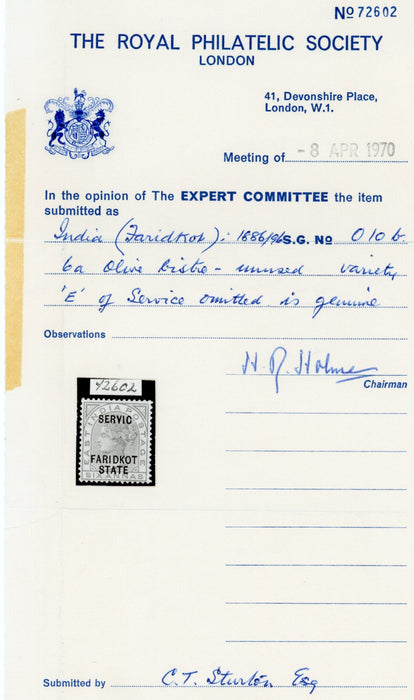 No 72602
THE ROYAL PHILATELIC SOCIETY
LONDON
41, Devonshire Place,
London, W.1.
Meeting of -8 APR 1970
In the opinion of The EXPERT COMMITTEE the item
submitted as
India (Faridkot): 1886/96 S.G. No O10b.
6a Olive bistre - unused variety
'E' of Service omitted is genuine
Observations
H. R. Holmes
Chairman
72602
SERVIC
EAST INDIA POSTAGE
FARIDKOT
STATE
SIX ANNAS
Submitted by C.T. Sturton Esq